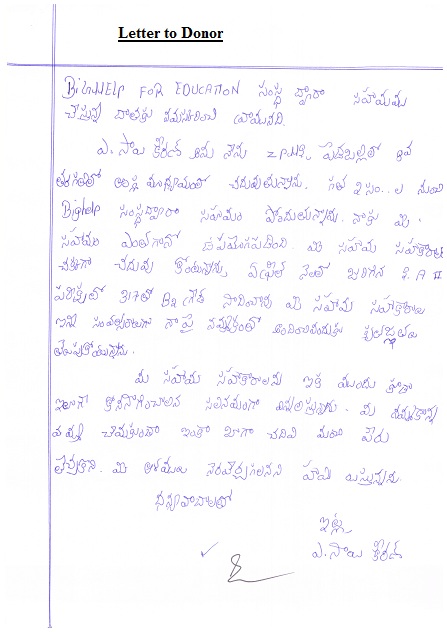 Letter to Donor
BigHELP FOR EDUCATION సంస్థ ద్వారా సహాయము
చేస్తున్న దాతకు నమస్కరించి వ్రాయునది.
ఎ. సాయి కిరణ్ అను నేను Z.P.H.S. లో 8వ
తరగతిలో ఆంగ్ల మాధ్యమంలో చదువుతున్నాను. గత 2 సం..ల నుండి
BigHelp సంస్థద్వారా సహాయం పొందుతున్నాను. నాకు మీ
సహాయం ఎంతగానో ఉపయోగపడింది. మీ సహాయ సహకారాలతో
చక్కగా చదువు కొంటున్నాను. ఏప్రిల్ నెలలో జరిగిన S.A II
పరీక్షల్లో 317తో B2 గ్రేడ్ సాధించాను మీ సహాయ సహకారాలు
ఇన్ని సంవత్సరాలుగా నా పై నమ్మకంతో అందించినందుకు కృతజ్ఞతలు
తెలుపుకొంటున్నాను.
మీ సహాయ సహకారాలను ఇక ముందు కూడా
ఇలాగే కొనసాగించాలని సవినయంగా విన్నవిస్తున్నాను. మీ నమ్మకాన్ని
వమ్ము చేయకుండా ఇంకా బాగా చదివి మంచి పేరు
తెస్తానని. మీ ఆశయాలు నెరవేర్చగలనని హామి ఇస్తున్నాను.
ధన్యవాదాలతో
ఇట్లు
ఎ. సాయి కిరణ్